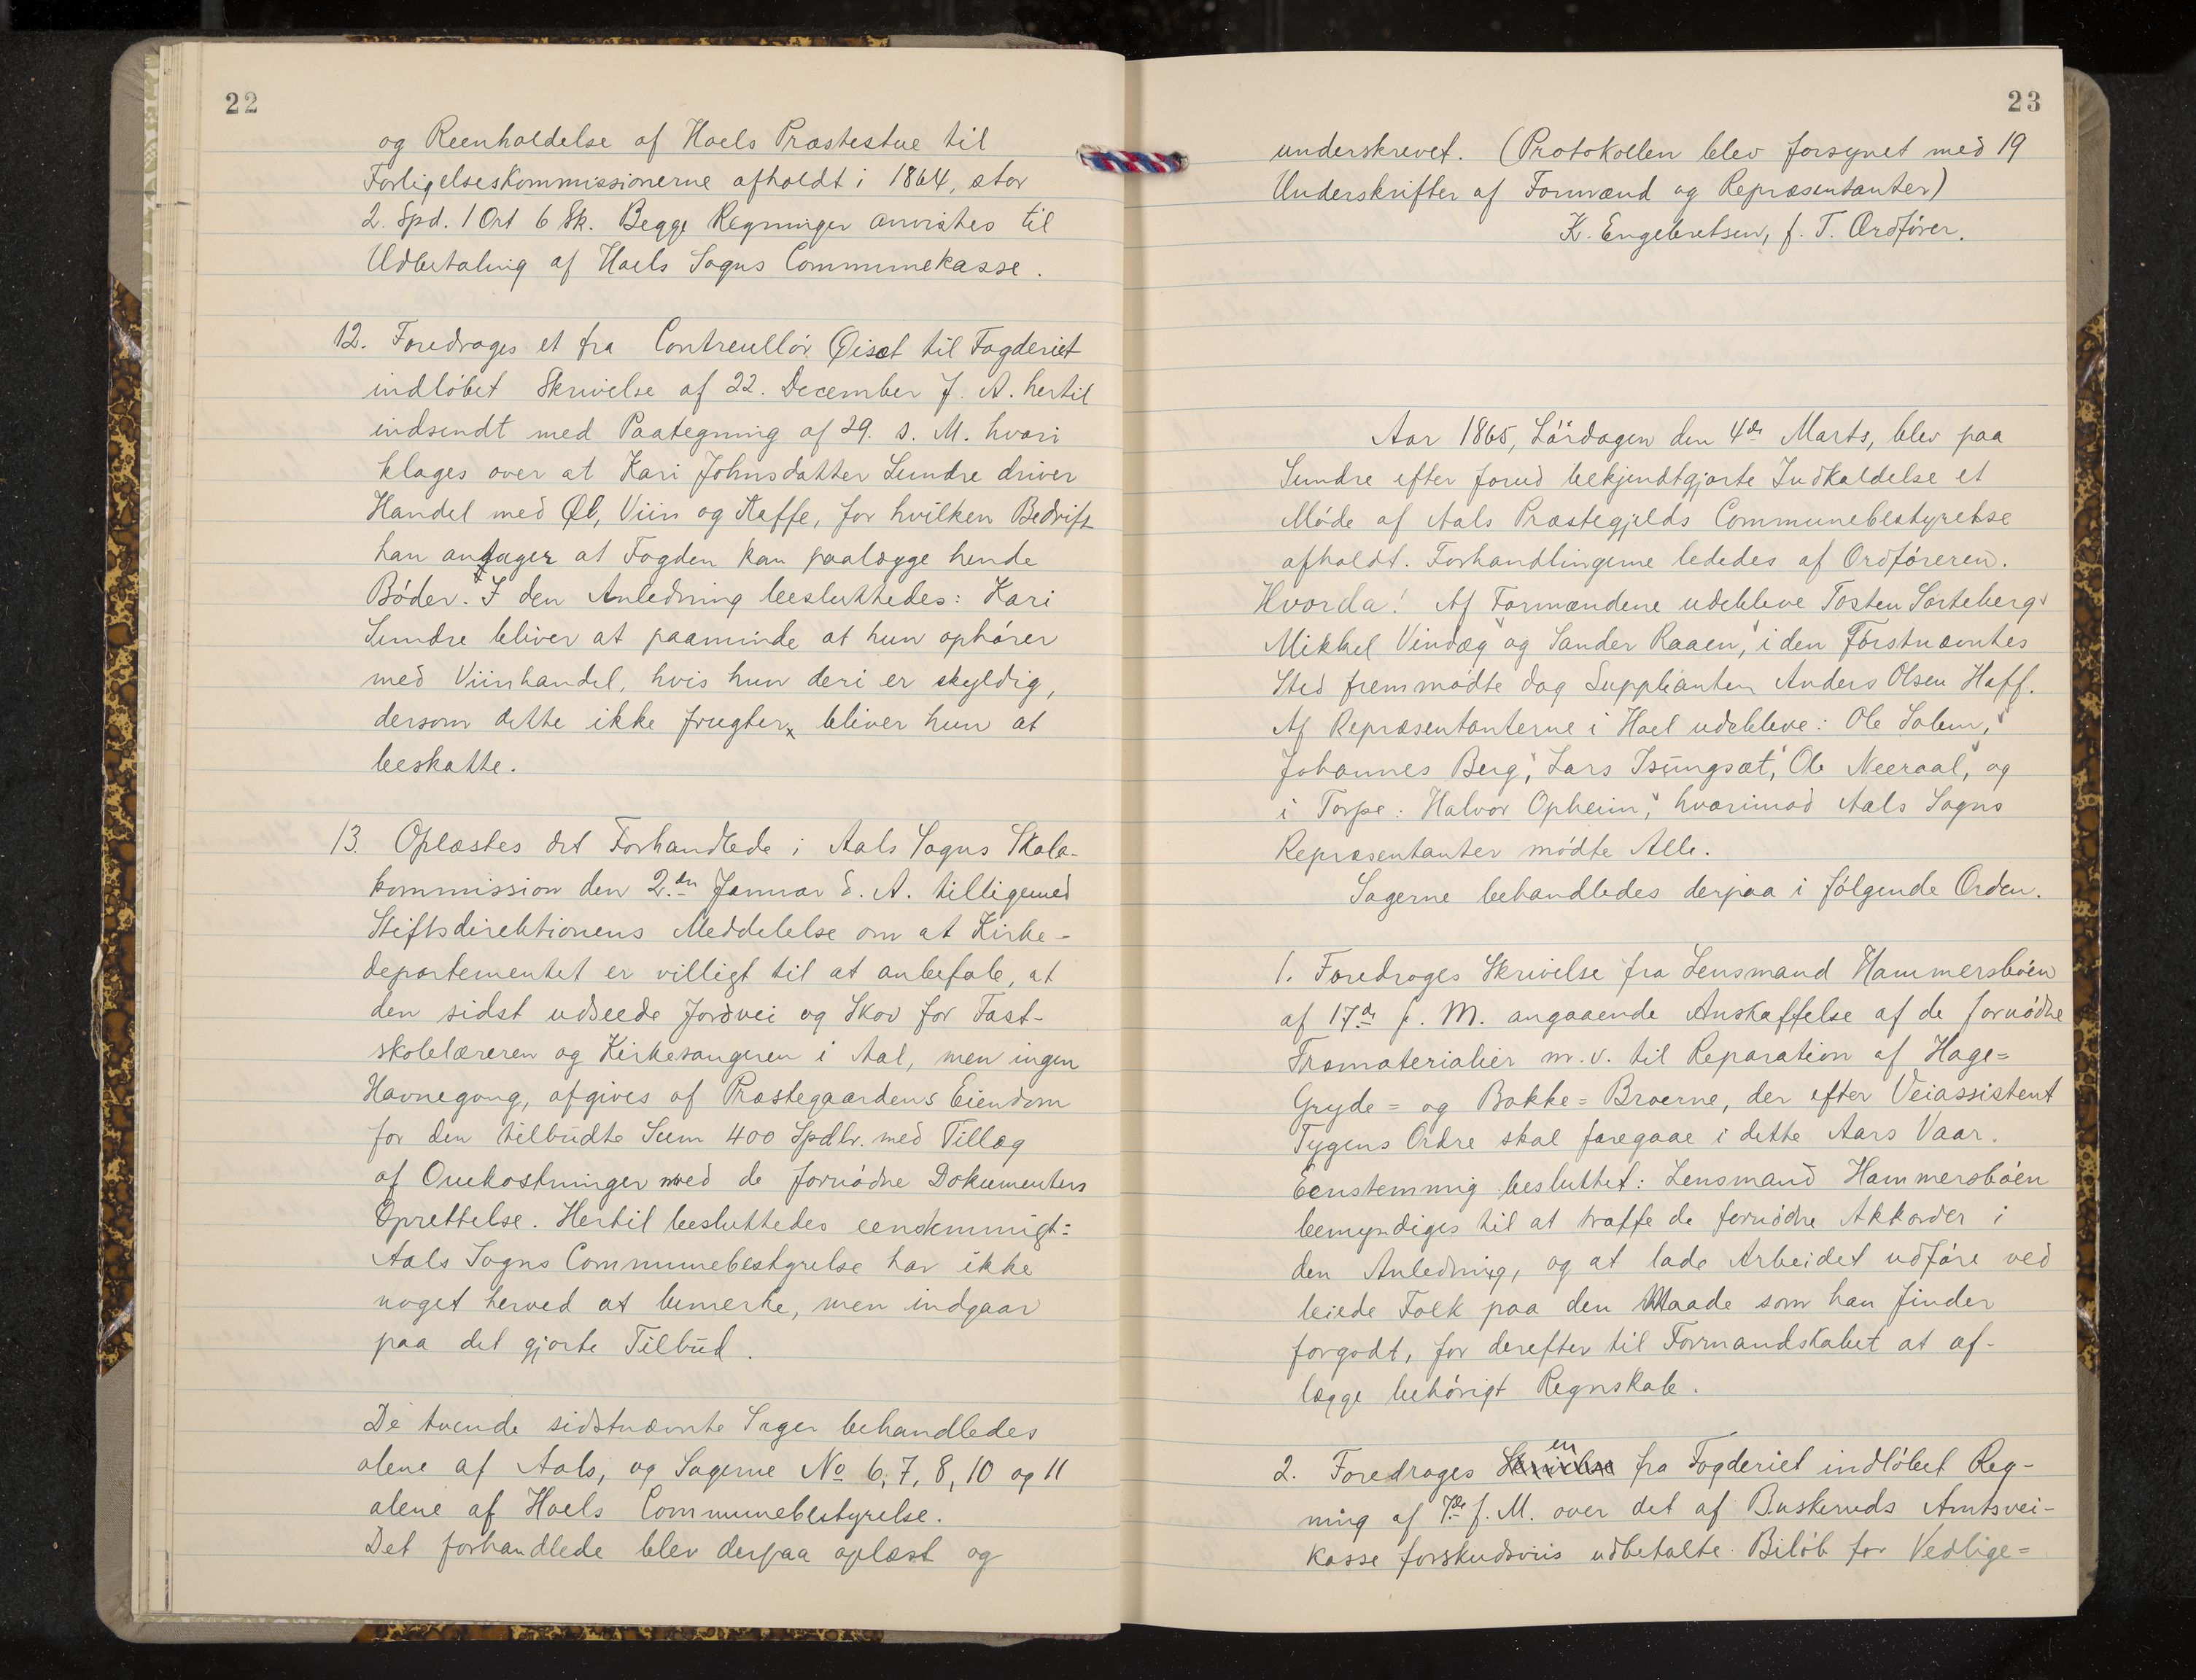 22
og Reenholdelse af Hoels Præstestue til
Forligelseskommissionerne afholdt i 1864, stor
2. Spd. 1 Ort 6 Sk. Begge Regninger anvistes til
Udbetaling af Hoels Sogns Communekasse.
12. Foredroges et fra Contreullør Øisæt til Fogderiet
indløbet Skrivelse af 22. December f. A. hertil
indsendt med Paategning af 29. s. M. hvori
klages over at Kari Johnsdatter Sundre driver
Handel med Øl, Viin og Kaffe, for hvilken Bedrift
han antager at Fogden kan paalægge hende
Bøder. I den Anledning besluttedes: Kari
Sundre bliver at paaminde at hun ophører
med Viinhandel, hvis hun deri er skyldig,
dersom dette ikke frugter, bliver hun at
beskatte.
13. Oplæstes det Forhandlede i Aals Sogns Skole-
kommission den 2.den Januar d. A. tilligemed
Stiftsdirektionens Meddelelse om at Kirke-
departementet er villigt til at anbefale, at
den sidst udseede Jordvei og Skov for Fast-
skolelæreren og Kirkesangeren i Aal, men ingen
Havnegang, afgives af Præstegaardens Eiendom
for den tilbudte Sum 400 Spdlr. med Tillæg
af Omkostninger med de fornødne Dokumenters
Oprettelse. Hertil besluttedes eenstemmigt:
Aals Sogns Communebestyrelse har ikke
noget herved at bemerke, men indgaar
paa det gjorte Tilbud.
De tvende sidstnævnte Sager behandledes
alene af Aals, og Sagerne No 6, 7, 8, 10 og 11
alene af Hoels Communebestyrelse.
Det forhandlede blev derpaa oplæst og
23
underskrevet. (Protokollen blev forsynet med 19
Underskrifter af Formænd og Repræsentanter)
K. Engebretsen, f. T. Ordfører.
Aar 1865, Lørdagen den 4de Marts, blev paa
Sundre efter forud bekjendtgjorte Indkaldelse et
Møde af Aals Præstegjelds Communebestyrelse
afholdt. Forhandlingerne lededes af Ordføreren.
Hvorda! Af Formændene udebleve Tosten Sorteberg,
Mikkel Vindæg og Sander Raaen, i den Førstnævntes
Sted fremmødte dog Supplianten Anders Olsen Hoff.
Af Repræsentanterne i Hoel udebleve: Ole Solem,
Johannes Berg, Lars Isungsæt, Ole Neeraal, og
i Torpe: Halvor Opheim, hvorimod Aals Sogns
Repræsentanter mødte Alle.
Sagerne behandledes derpaa i følgende Orden.
1. Foredroges Skrivelse fra Lensmand Hammersbøen
af 17de f. M. angaaende Anskaffelse af de fornødne
Træmaterialier m.v. til Reparation af Hage=
Gryde= og Bakke=Broerne, der efter Veiassistent
Tygens Ordre skal foregaae i dette Aars Vaar.
Eenstemmig besluttet: Lensmand Hammersbøen
bemyndiges til at træffe de fornødne Akkorder i
den Anledning, og at lade Arbeidet udføre ved
leiede Folk paa den Maade som han finder
forgodt, for derefter til Formandskabet at af-
lægge behørigt Regnskab.
2. Foredroges Skrivelse en fra Fogderiet indløbet Reg-
ning af 7de f. M. over det af Buskeruds Amtsvei-
kasse forskudsviis udbetalte Beløb for Vedlige=